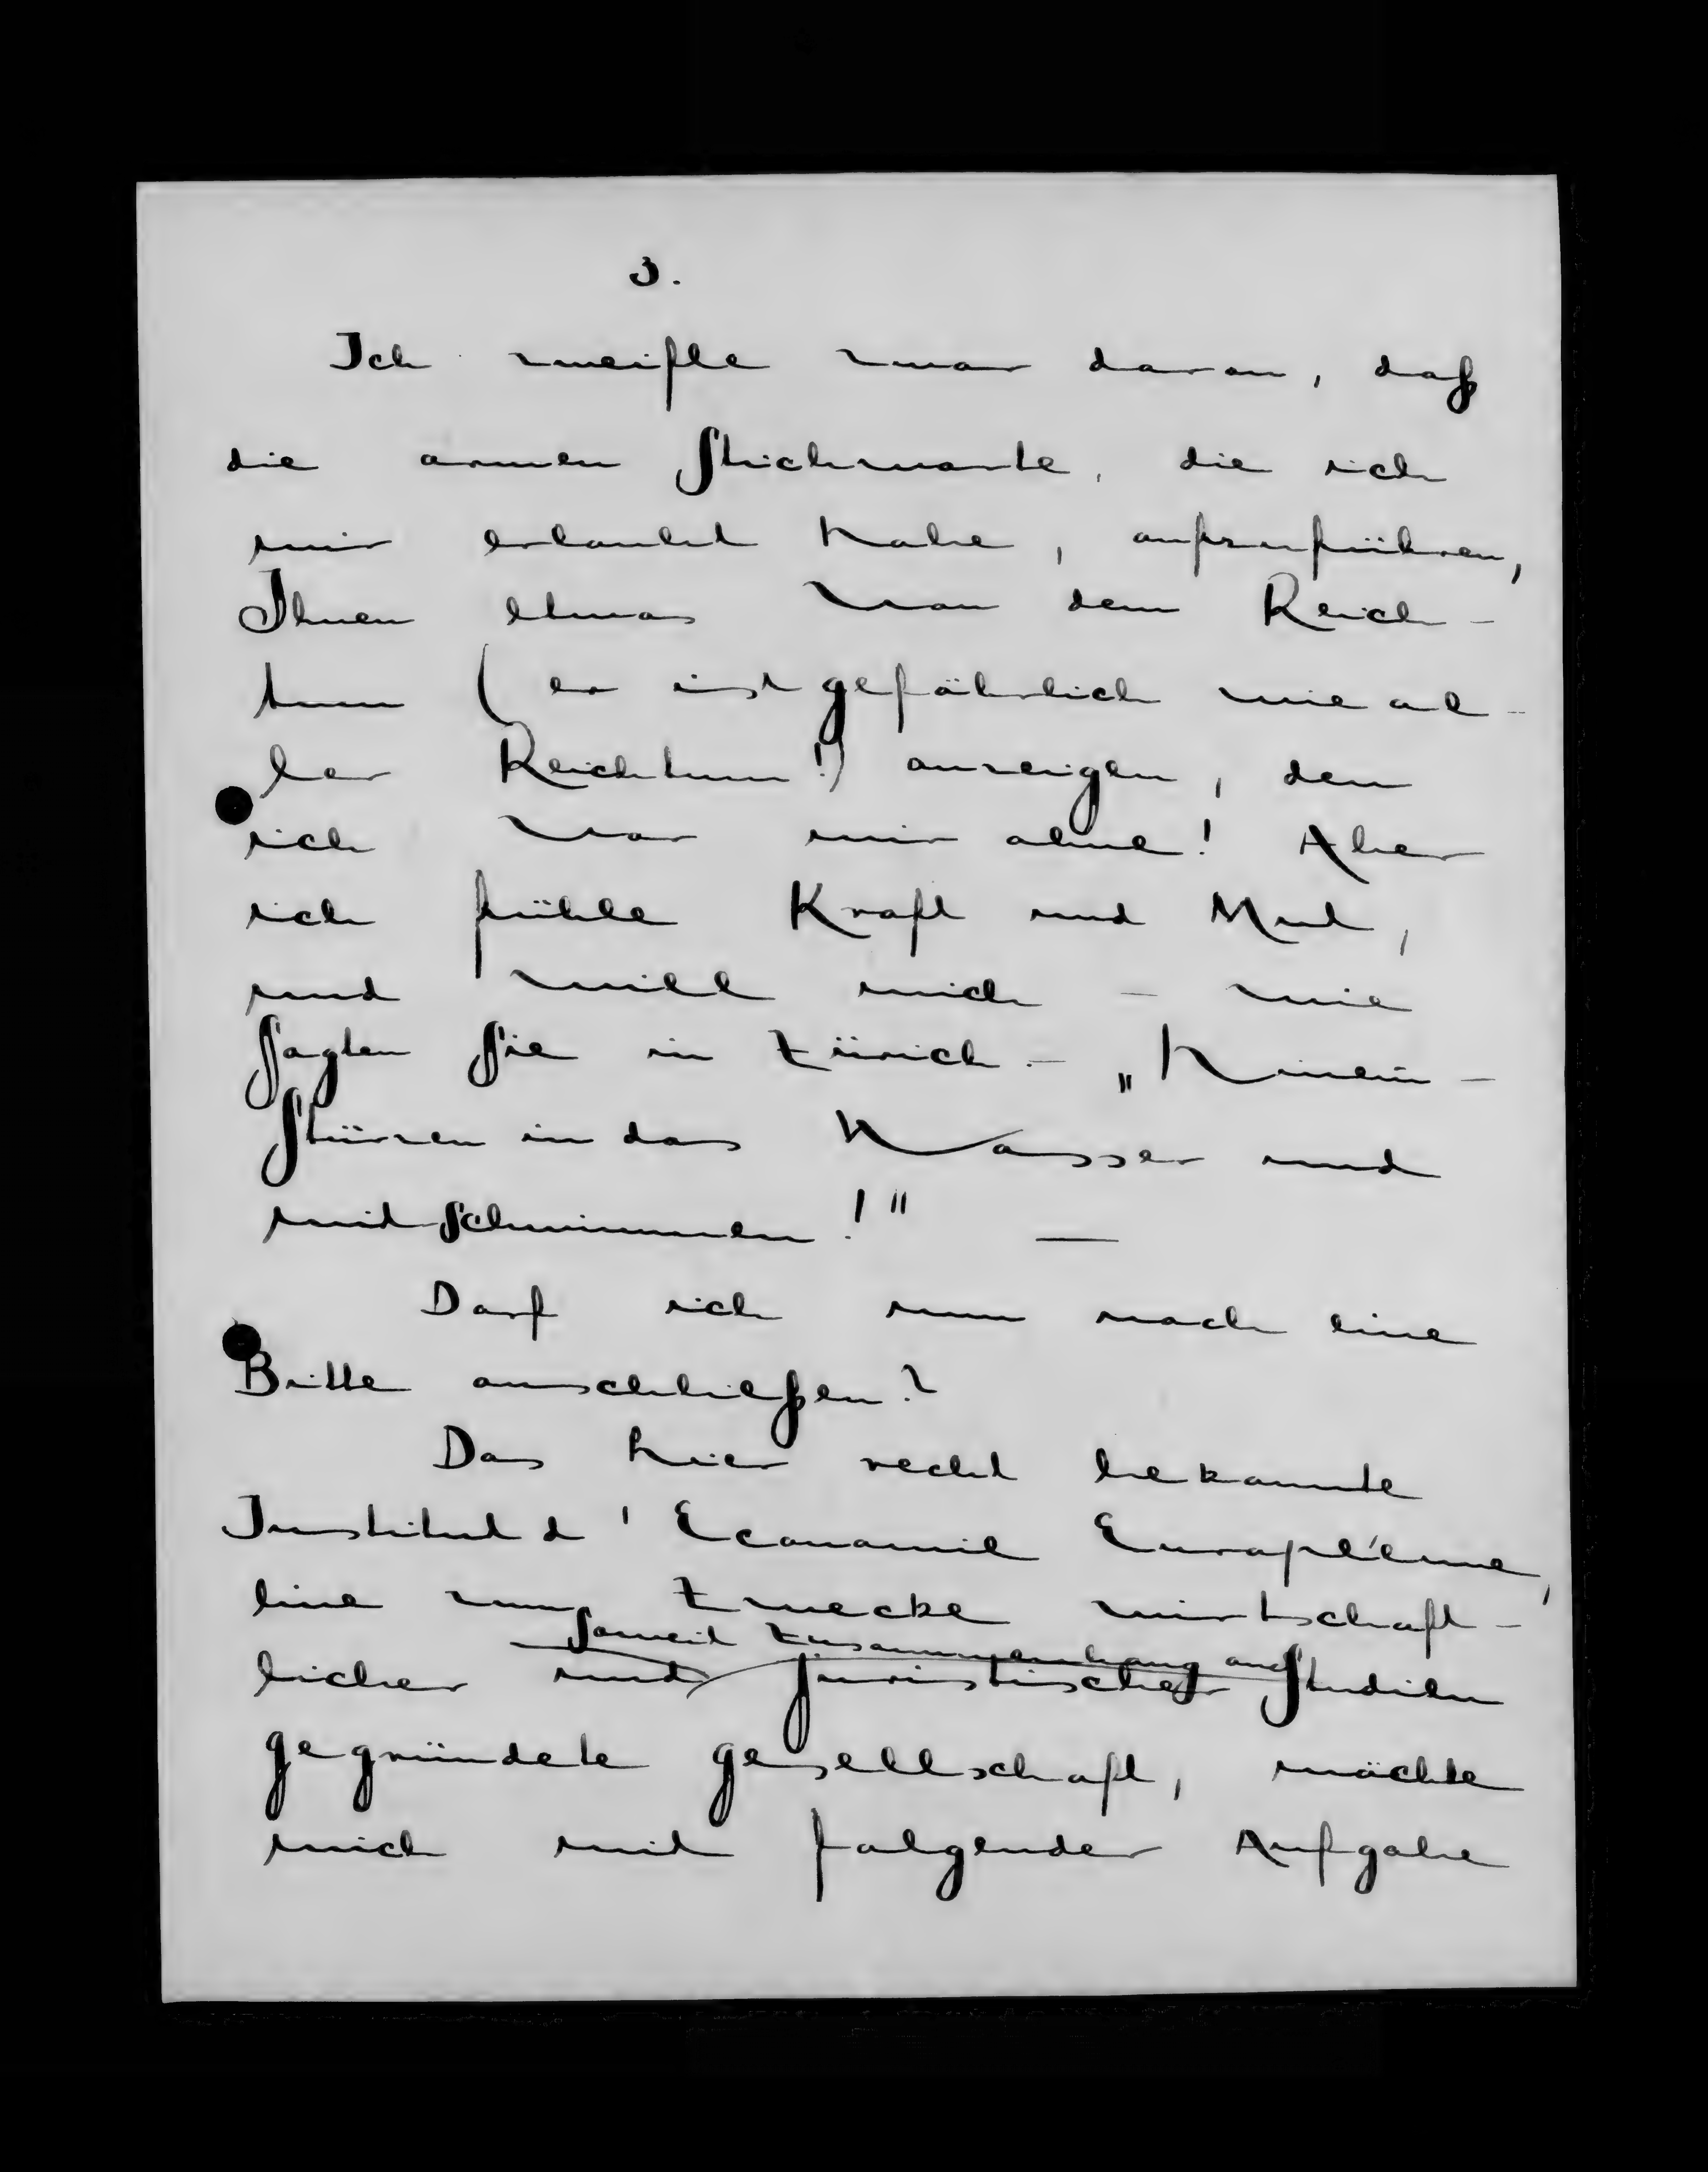 3.
Ich zweifle zwar daran, daß
die armen Stichworte, die ich
mir erlaubt habe, aufzuführen,
Ihnen etwas von dem Reich-
tum (er ist gefährlich wie al-
ler Reichtum!) anzeigen, den
ich vor mir ahne! Aber
ich fühle Kraft und Mut,
und will mich – wie
sagten Sie in Zürich – „hinein-
stürzen in das Wasser und
mitschwimmen!" —
Darf ich nun noch eine
Bitte anschließen?
Das hier recht bekannte
Institut d'Economie Européenne,
eine zum Zwecke wirtschaft-
soweit Zusammenhang auch
licher und juristischer Studien
gegründete Gesellschaft, möchte
mich mit folgender Aufgabe